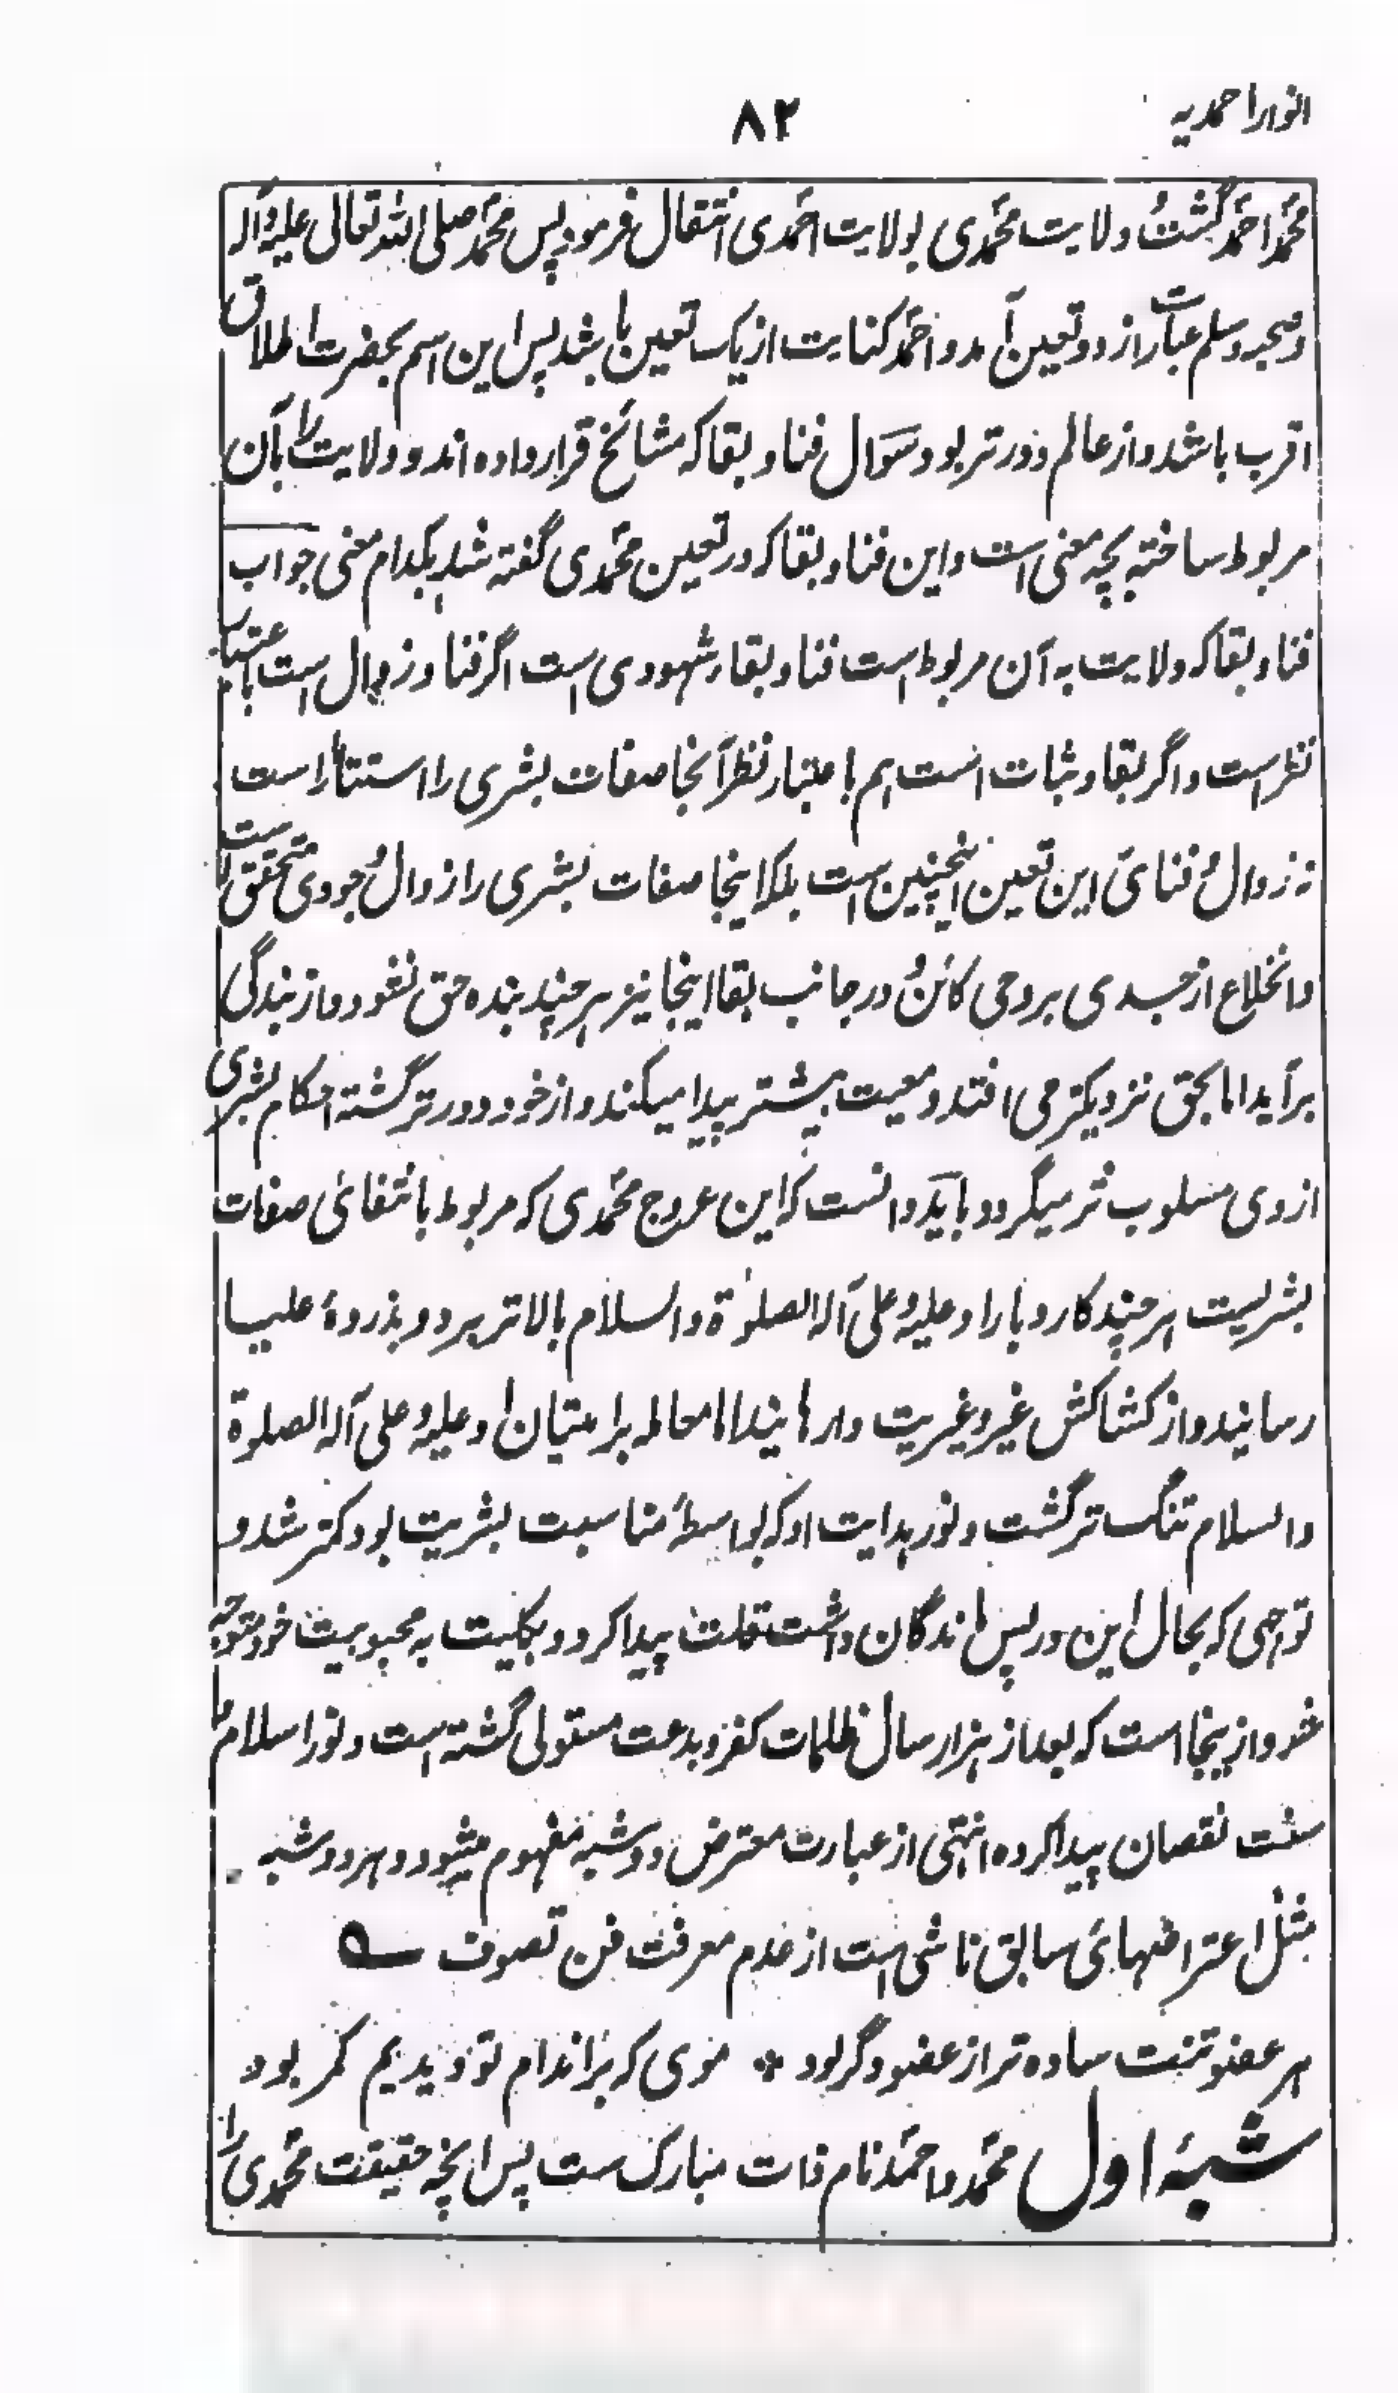 انوار احمدیہ
۸۲
محمدؐ احمدؐ گشت و ولایت محمدی بولایت احمدی انتقال فرمود پس محمدؐ صلی اللہ تعالی علیہ وآلہ
وصحبہ وسلم عبارت از دو تعین آمد و احمد کنایت از یک تعین باشد پس این اسم بحضرت اطلاق
اقرب باشد و از عالم دورتر بود سوال فنا و بقا که مشائخ قرار داده اند و ولایت را بآن
مربوط ساخته بچه معنی است و این فنا و بقا که در تعین محمدی گفته شد بکدام معنی جواب
فنا و بقا که ولایت به آن مربوط است فنا و بقاء شهودی است اگر فنا و زوال است باعتبار
نظر است و اگر بقا و ثبات است هم باعتبار نظر آنجا صفات بشری را استتار است
نه زوال و فنائ این تعین اینچنین است بلکه اینجا صفات بشری را زوال وجودی متحقق است
وانخلاع از جسدی بروحی کائن و در جانب بقا اینجا نیز هر چند بنده حق نشود و از بندگی
برآید اما بحق نزدیکتر می افتد و معیت بیشتر پیدا میکند و از خود دورتر گشته احکام بشری
از وی مسلوب تر میگردد باید دانست که این عروج محمدی که مربوط بانتفائ صفات
بشریت هر چند کاروبار او علیه وعلی آله الصلوٰة والسلام بالاتر برد و بذروهٔ علیا
رسانید و از کشاکش غیر و غیریت وارهانید اما معامله بر امتیان او علیه وعلی آله الصلوة
والسلام تنگ تر گشت و نور هدایت او که بواسطهٔ مناسبت بشریت بود کمتر شد و
توجهی که بحال این در پس ماندگان داشت قلت پیدا کرد و بکلیت به محبوبیت خود متوجه
شد و ازینجا است که بعد از هزار سال ظلمات کفر و بدعت مستولی گشته است و نور اسلام و
سنت نقصان پیدا کرده انتهی از عبارت معترض دو شبه مفهوم میشود و هر دو شبه
مثل اعتراضهائ سابق ناشی است از عدم معرفت فن تصوف
هر عضو تنت ساده تر از عضو دگر بود * موی که بر اندام تو دیدیم کمر بود
شبهٔ اول محمدؐ و احمدؐ نام ذات مبارک ست پس آنچه حقیقت محمدی را